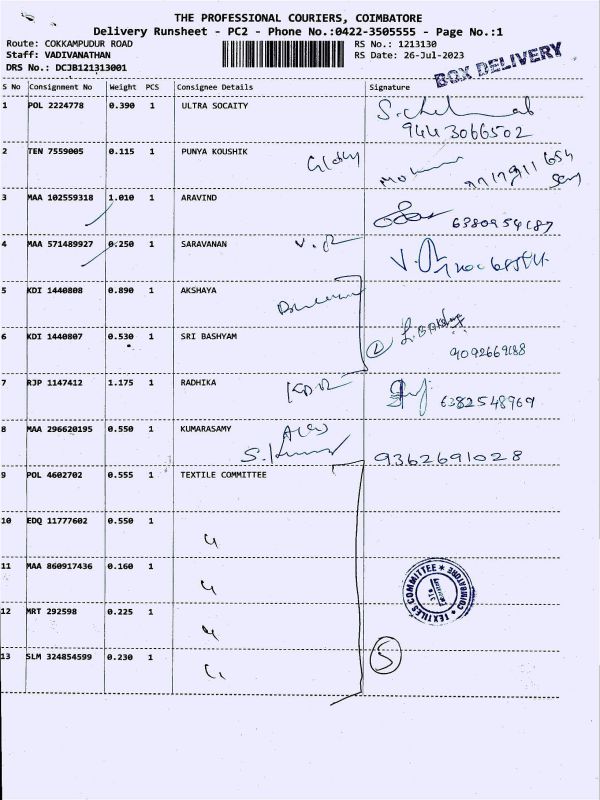 THE PROFESSIONAL COURIERS, COIMBATORE
Delivery Runsheet - PC2 - Phone No.:0422-3505555 - Page No.:1
Route: COKKAMPUDUR ROAD RS No.: 1213130
Staff: VADIVANATHAN RS Date: 26-Jul-2023
DRS No.: DCJB121313001
BOX DELIVERY
S No Consignment No Weight PCS Consignee Details Signature
1 POL 2224778 0.390 1 ULTRA SOCAITY
9443066502
2 TEN 7559005 0.115 1 PUNYA KOUSHIK
3 MAA 102559318 1.010 1 ARAVIND
6380954187
4 MAA 571489927 0.250 1 SARAVANAN
5 KDI 1440808 0.890 1 AKSHAYA
6 KDI 1440807 0.530 1 SRI BASHYAM
2
9092669188
7 RJP 1147412 1.175 1 RADHIKA
6382548969
8 MAA 296620195 0.550 1 KUMARASAMY
9362691028
9 POL 4602702 0.555 1 TEXTILE COMMITTEE
10 EDQ 11777602 0.550 1 "
11 MAA 860917436 0.160 1 "
TEXTILES COMMITTEE * COIMBATORE *
12 MRT 292598 0.225 1 "
13 SLM 324854599 0.230 1 "
5